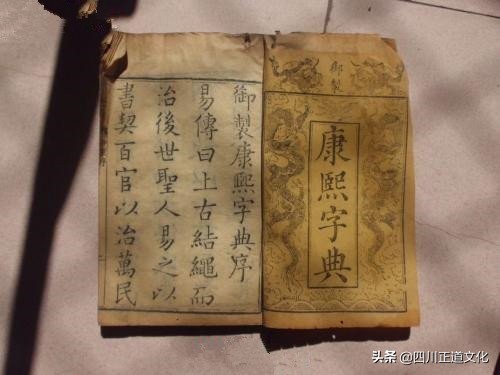 御製
康熙字典
御製康熙字典序
易傳曰上古結繩而
治後世聖人易之以
書契百官以治萬民
头条 @四川正道文化